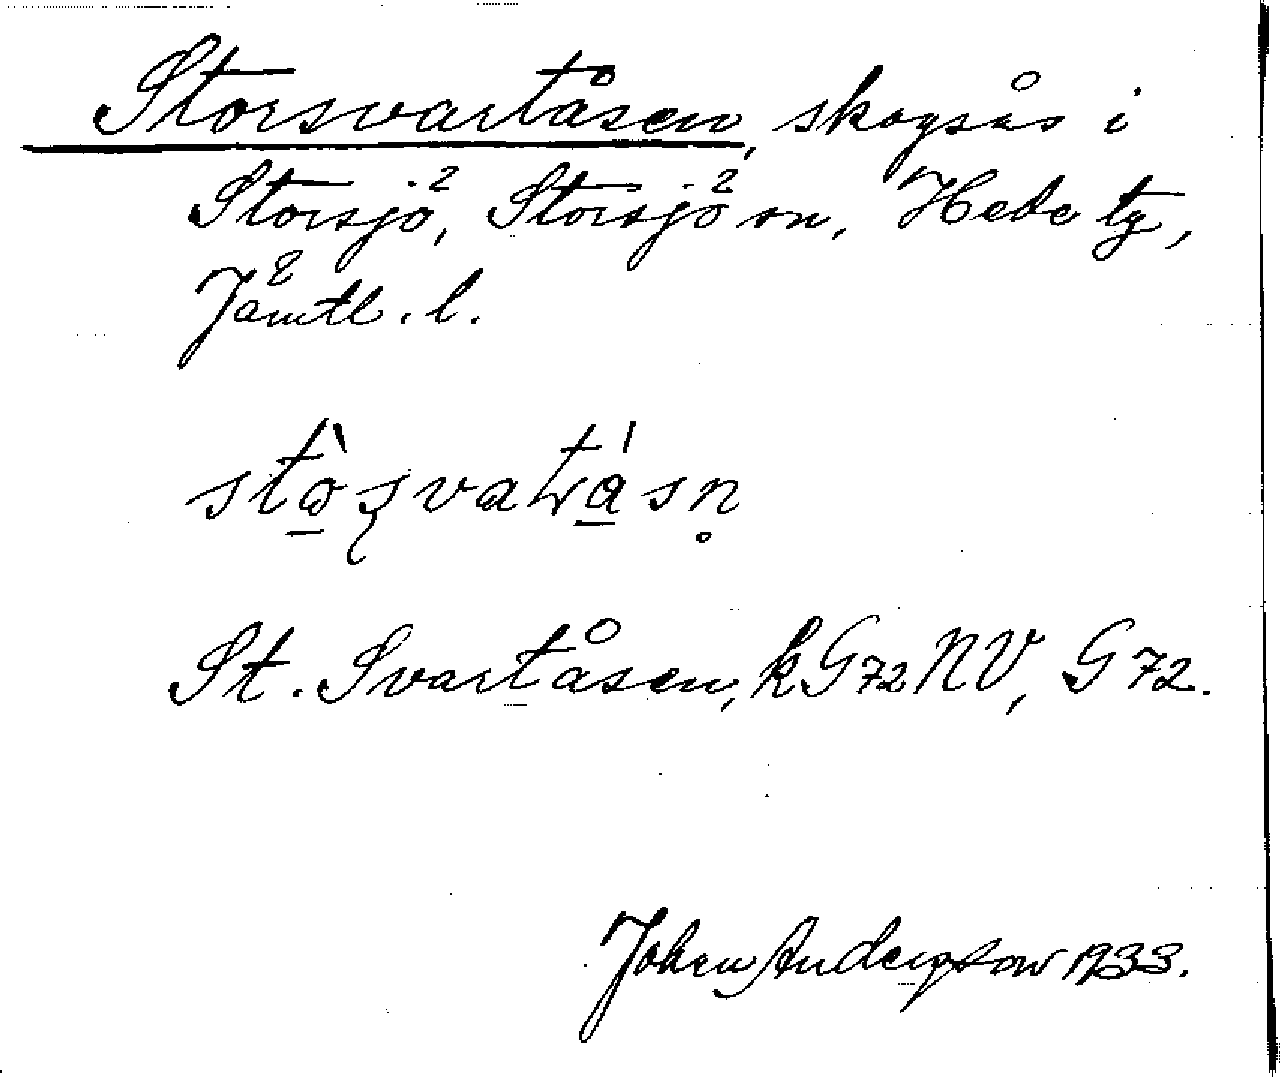 Storsvartåsen, skogsås i
Storsjö, Storsjö sn, Hede tg,
Jämtl. l.
St. Svartåsen, k G72 NV, G 72.
Johan Andersson 1933.